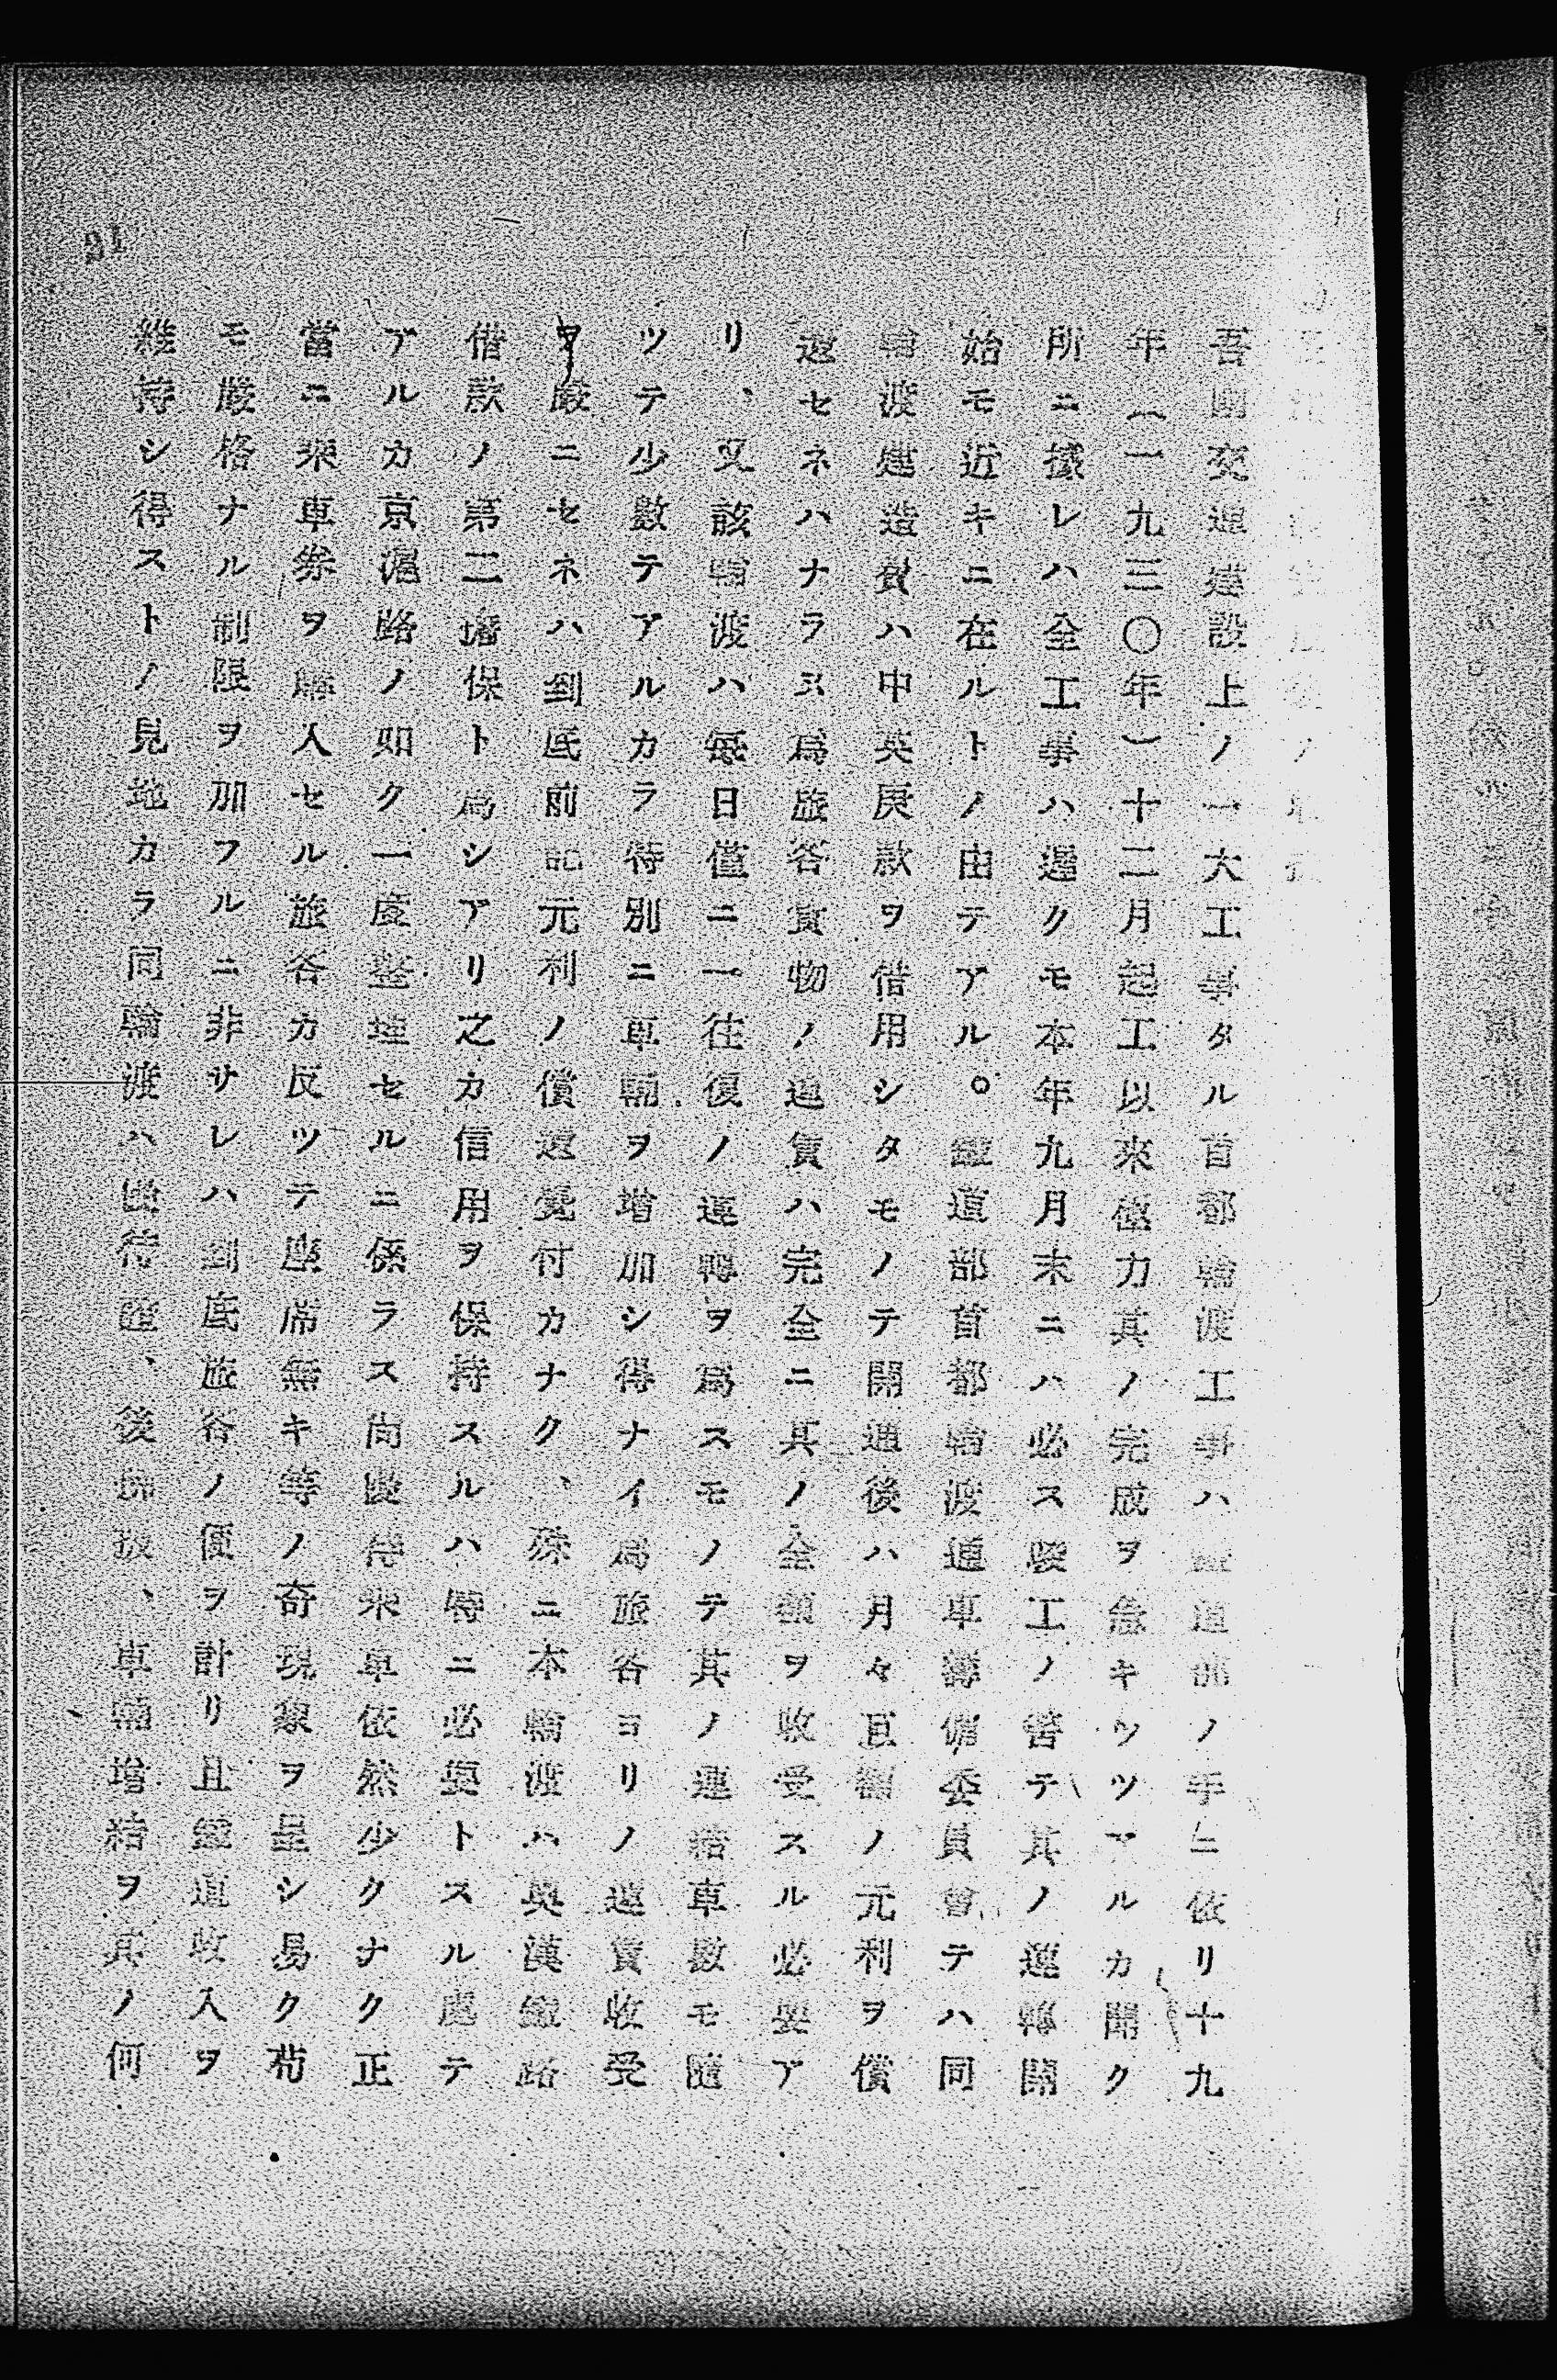 吾國交通建設上ノ一大工事タル首都輪渡工事ハ鐵道部ノ手ニ依リ十九
年(一九三〇年)十二月起工以來極力其ノ完成ヲ急キツツアルカ聞ク
所ニ據レハ全工事ハ遲クモ本年九月末ニハ必ス竣工ノ筈テ其ノ運轉開
始モ近キニ在ルトノ由テアル。鐵道部首都輪渡通車籌備委員會テハ同
輪渡建造費ハ中英庚款ヲ借用シタモノテ開通後ハ月々巨額ノ元利ヲ償
還セネハナラヌ爲旅客貨物ノ運賃ハ完全ニ其ノ全額ヲ收受スル必要ア
リ、又該輪渡ハ每日僅ニ一往復ノ運轉ヲ爲スモノテ其ノ連結車數モ隨
ツテ少數テアルカラ特別ニ車輛ヲ增加シ得ナイ爲旅客ヨリノ運賃收受
ヲ嚴ニセネハ到底前記元利ノ償還覺付カナク、殊ニ本輪渡ハ粤漢鐵路
借款ノ第二擔保ト爲シアリ之カ信用ヲ保持スルハ特ニ必要トスル處テ
アルカ京滬路ノ如ク一度整理セルニ係ラス尚優待乘車依然少クナク正
當ニ乘車券ヲ購入セル旅客カ反ツテ座席無キ等ノ奇現象ヲ呈シ易ク茍
モ嚴格ナル制限ヲ加フルニ非サレハ到底旅客ノ便ヲ計リ且鐵道收入ヲ
維持シ得ストノ見地カラ同輪渡ハ優待證、後拂扱、車輛增結ヲ其ノ何
91